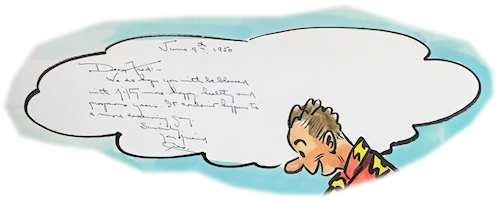 June 9th. 1950
Dear Fred:-
We all hope you will be blessed
with fifty more happy, healthy and
prosperous years. It couldn't happen to
a more deserving guy.
Sincerely,